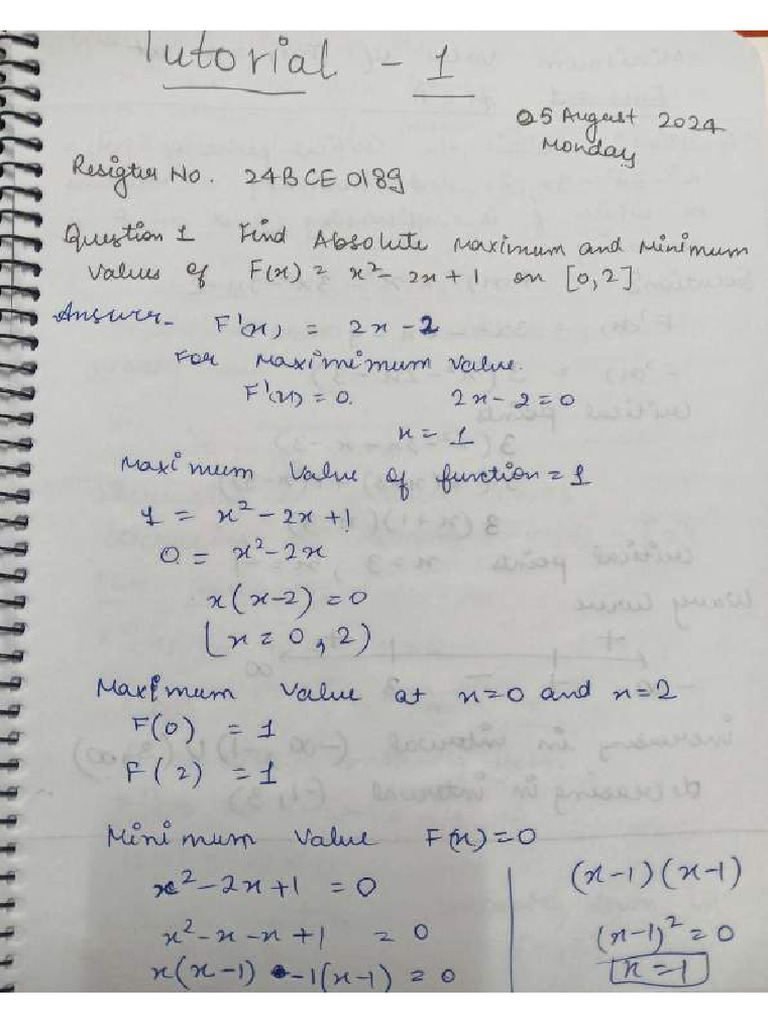 Tutorial - 1
05 August 2024
Monday
Resigter No. 24BCE0189
Question 1 Find Absolute Maximum and Minimum
values of F(x) = x² - 2x + 1 on [0,2]
Answer- F'(x) = 2x - 2
For Maximimum value.
F'(x) = 0. 2x - 2 = 0
x = 1
Maximum Value of function = 1
1 = x² - 2x + 1
0 = x² - 2x
x(x-2) = 0
(x = 0, 2)
Maximum Value at x=0 and x=2
F(0) = 1
F(2) = 1
Minimum Value F(x) = 0
x² - 2x + 1 = 0
x² - x - x + 1 = 0
x(x-1) -1(x-1) = 0
(x-1)(x-1)
(x-1)² = 0
x = 1